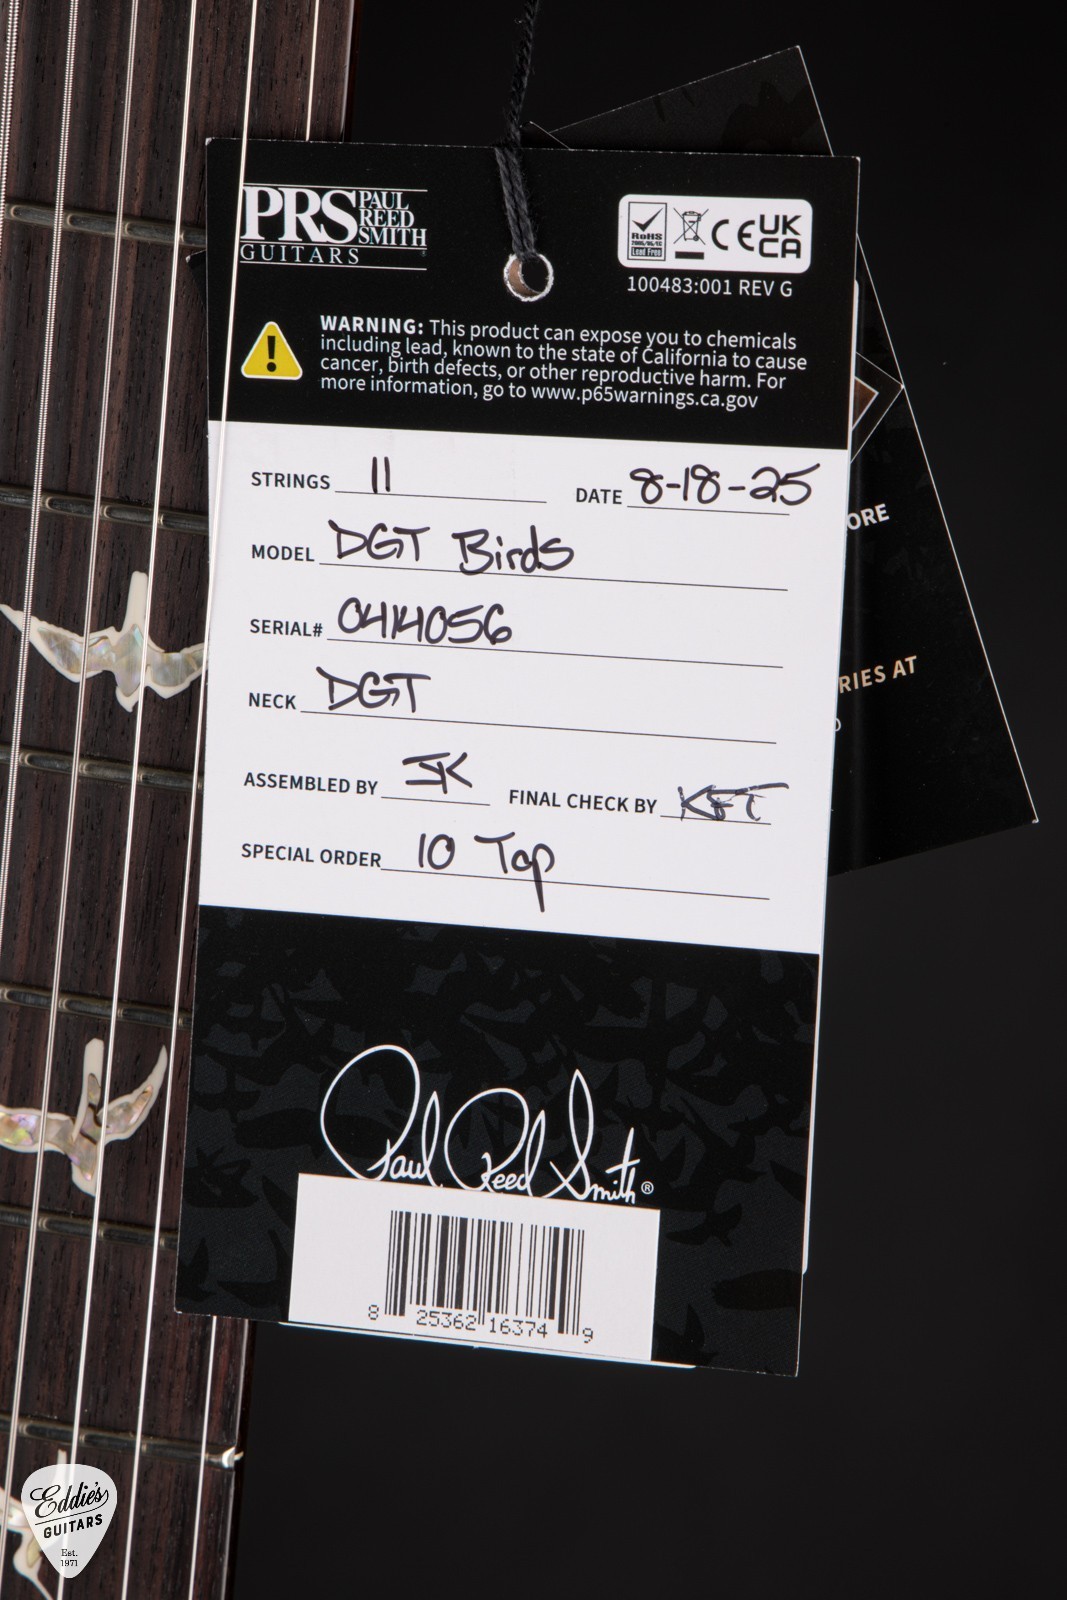 PRS PAUL REED SMITH
GUITARS
RoHS
2005/95/EC
Lead Free
CE UK CA
100483:001 REV G
WARNING: This product can expose you to chemicals
including lead, known to the state of California to cause
cancer, birth defects, or other reproductive harm. For
more information, go to www.p65warnings.ca.gov
STRINGS 11 DATE 8-18-25
MODEL DGT Birds
SERIAL# 0414056
NECK DGT
ASSEMBLED BY JK FINAL CHECK BY KFT
SPECIAL ORDER 10 Top
ORE
RIES AT
Paul Reed Smith®
8 25362 16374 9
Eddie's
GUITARS
Est.
1971